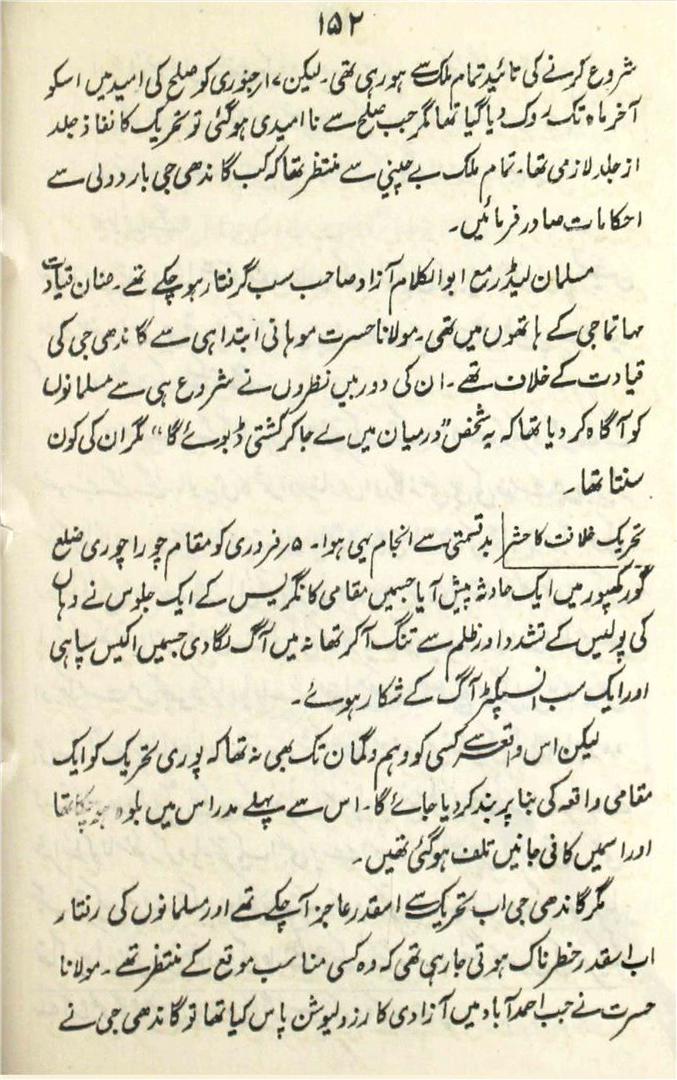 ۱۵۲
شروع کرنے کی تائید تمام ملک سے ہو رہی تھی۔ لیکن ۱۷ر جنوری کو صلح کی امید میں اسکو
آخر ماہ تک روک دیا گیا تھا مگر جب صلح سے نا امیدی ہو گئی تو تحریک کا نفاذ جلد
از جلد لازمی تھا۔ تمام ملک بے چینی سے منتظر تھا کہ کب گاندھی جی باردولی سے
احکامات صادر فرمائیں۔
مسلمان لیڈر مع ابوالکلام آزاد صاحب سب گرفتار ہو چکے تھے۔ عنان قیادت
مہاتما جی کے ہاتھوں میں تھی۔ مولانا حسرت موہانی ابتدا ہی سے گاندھی جی کی
قیادت کے خلاف تھے۔ ان کی دوربیں نظروں نے شروع ہی سے مسلمانوں
کو آگاہ کر دیا تھا کہ یہ شخص "درمیان میں لے جا کر کشتی ڈبوئے گا" مگر ان کی کون
سنتا تھا۔
تحریک خلافت کا حشر بد قسمتی سے انجام یہی ہوا۔ ۵ر فروری کو مقام چورا چوری ضلع
گورکھپور میں ایک حادثہ پیش آیا جسمیں مقامی کانگریس کے ایک جلوس نے وہاں
کی پولیس کے تشدد اور ظلم سے تنگ آکر تھانہ میں آگ لگا دی جسمیں اکیس سپاہی
اور ایک سب انسپکٹر آگ کے شکار ہوئے۔
لیکن اس واقعہ سے کسی کو وہم و گمان تک بھی نہ تھا کہ پوری تحریک کو ایک
مقامی واقعہ کی بنا پر بند کر دیا جائے گا۔ اس سے پہلے مدراس میں بلوہ ہو چکا تھا
اور اسمیں کافی جانیں تلف ہو گئی تھیں۔
مگر گاندھی جی اب تحریک سے اسقدر عاجز آ چکے تھے اور مسلمانوں کی رفتار
اب اسقدر خطرناک ہوتی جا رہی تھی کہ وہ کسی مناسب موقع کے منتظر تھے۔ مولانا
حسرت نے جب احمد آباد میں آزادی کا رزولیوشن پاس کیا تھا تو گاندھی جی نے